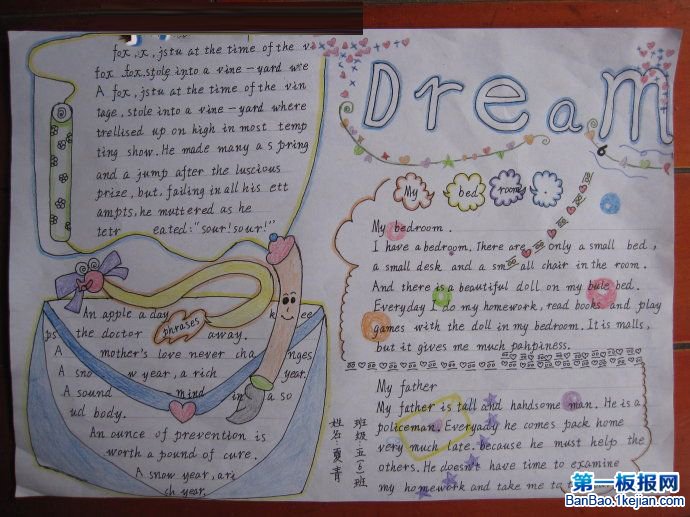 fox, x, jstu at the time of the v
fox fox stole into a vine-yard we
A fox, jstu at the time of the vin
tage, stole into a vine-yard where
trellised up on high in most temp
ting show. He made many a spring
and a jump after the luscious
prize, but, failing in all his ett
ampts, he muttered as he
tetr eated: "sour! sour!"
An apple a day k ee
ps the doctor away.
phrases
A mother's love never cha nges
A snow year, a rich year.
A sound mind in a so
ud body.
An ounce of prevention is
worth a pound of cure.
A snow year, ari
ch year.
Dream
My bed room .
My bedroom.
I have a bedroom. There are only a small bed,
a small desk and a small chair in the room.
And there is a beautiful doll on my bule bed.
Everyday I do my homework, read books and play
games with the doll in my bedroom. It is malls,
but it gives me much pahpiness.
My father
My father is tall and handsome man. He is a
policeman. Everyady he comes pack home
very much late. because he must help the
others. He doesn't have time to examine
my homework and take me to
班级:五(6)班
姓名:夏青
第一板报网
BanBao.1kejian.com